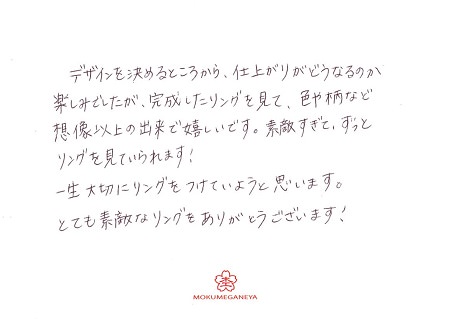 デザインを決めるところから、仕上がりがどうなるのか
楽しみでしたが、完成したリングを見て、色や柄など
想像以上の出来で嬉しいです。素敵すぎて、ずっと
リングを見ていられます!
一生大切にリングをつけていようと思います。
とても素敵なリングをありがとうございます!
MOKUMEGANEYA